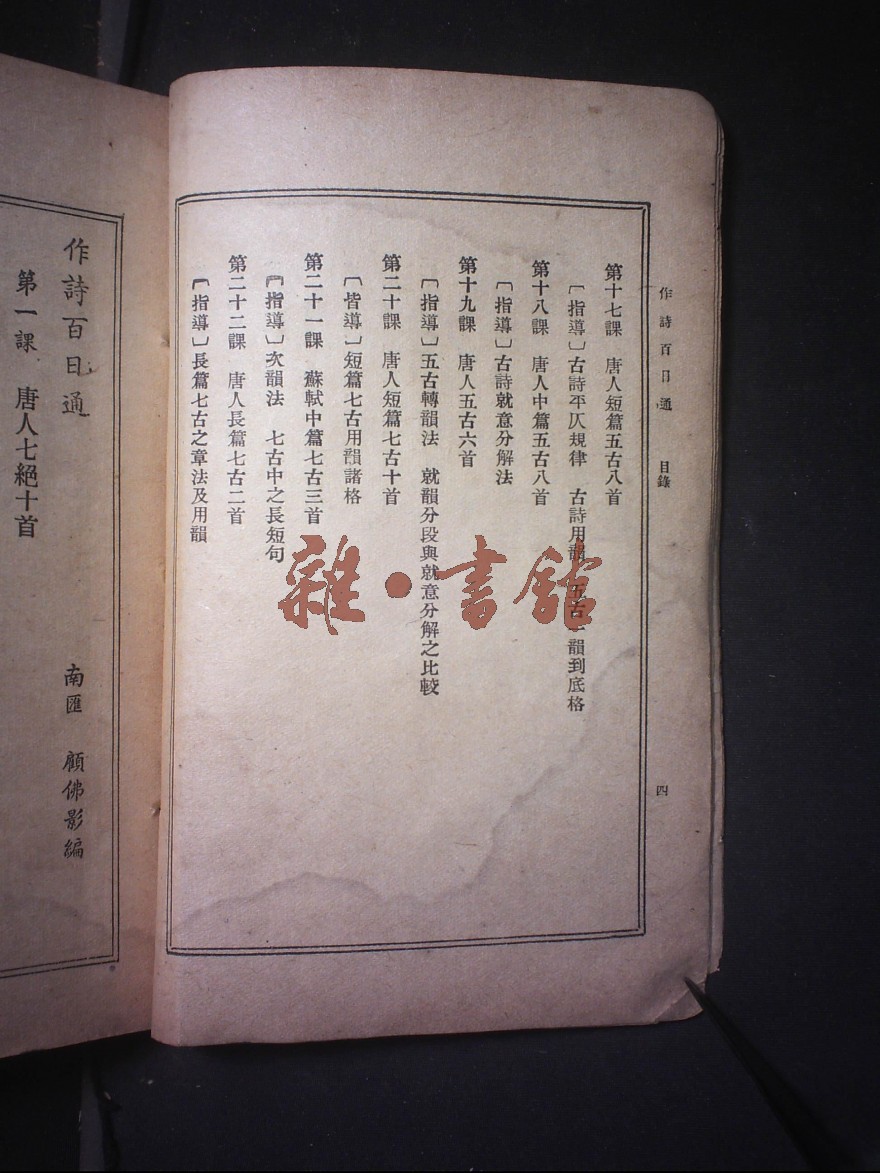 作詩百日通 目錄 四
第十七課 唐人短篇五古八首
〔指導〕古詩平仄規律 古詩用韻 五古一韻到底格
第十八課 唐人中篇五古八首
〔指導〕古詩就意分解法
第十九課 唐人五古六首
〔指導〕五古轉韻法 就韻分段與就意分解之比較
第二十課 唐人短篇七古十首
〔皆導〕短篇七古用韻諸格
第二十一課 蘇軾中篇七古三首
〔指導〕次韻法 七古中之長短句
第二十二課 唐人長篇七古二首
〔指導〕長篇七古之章法及用韻
雜·書館
作詩百日通
南匯 顧佛影編
第一課 唐人七絕十首